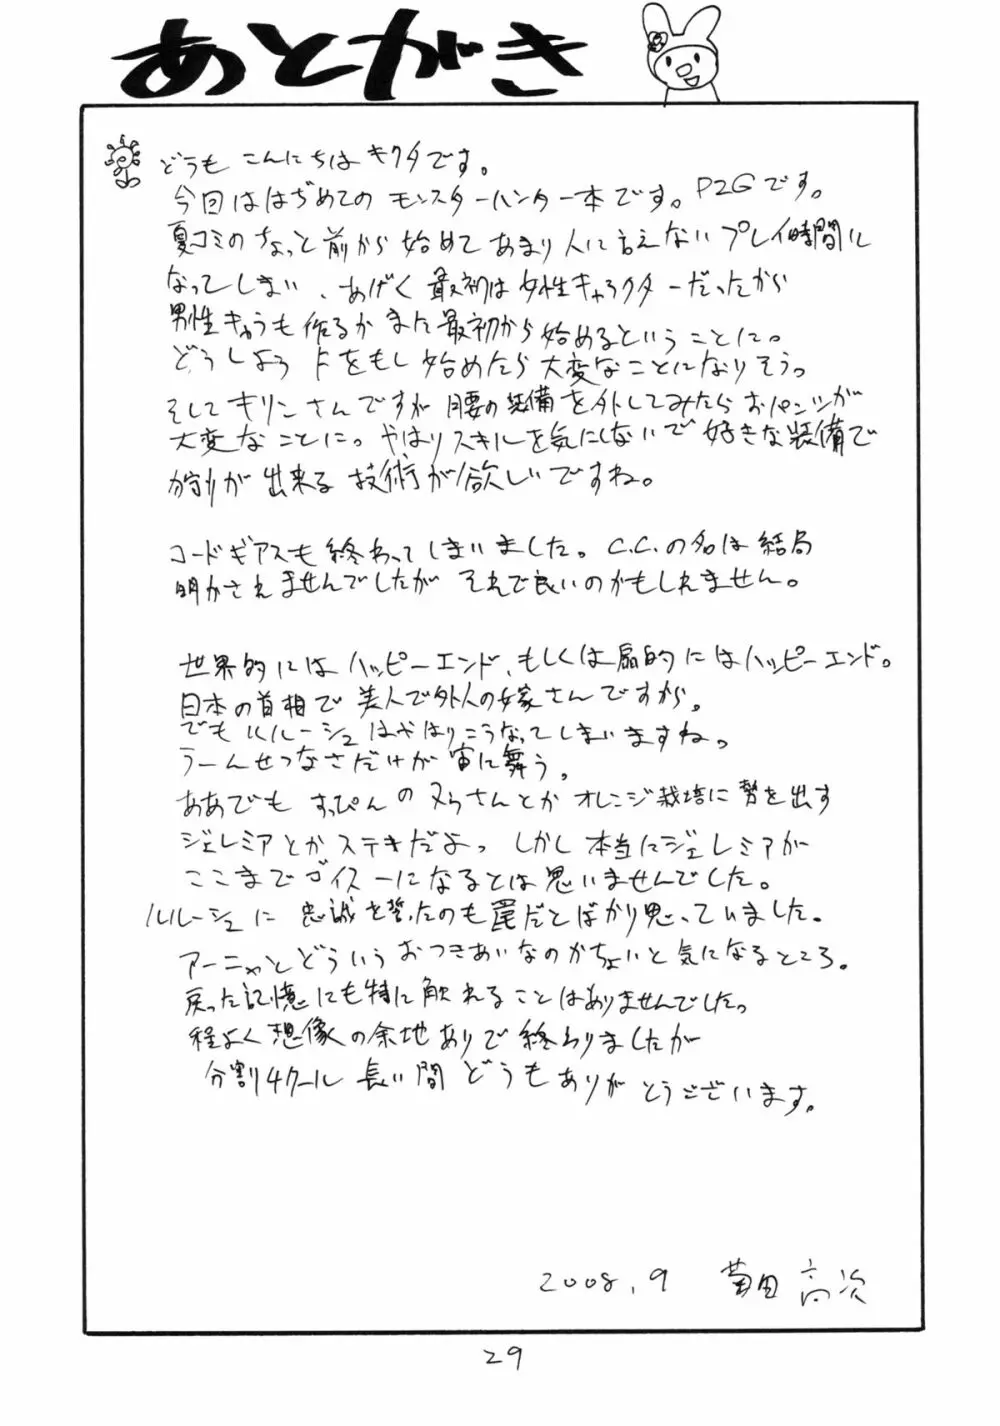 あとがき
どうも こんにちは キクタです。
今回は はじめての モンスターハンター本です。P2Gです。
夏コミの ちょっと前から 始めて あまり 人に 言えない プレイ時間に
なってしまい、あげく 最初は 女性キャラクターだったから
男性キャラも 作るか また 最初から 始めるということに。
どうしよう Fをもし 始めたら 大変なことになりそう。
そして キリンさんですが 腰の装備を 外してみたら おパンツが
大変なことに。やはり スキルを気にしないで 好きな装備で
狩りが 出来る 技術が 欲しいですね。
コードギアスも 終わってしまいました。C.C.の名は 結局
明かされませんでしたが それで良いのかもしれません。
世界的には ハッピーエンド、もしくは 扇的には ハッピーエンド。
日本の首相で 美人で外人の嫁さんですが。
でも ルルーシュは やはり こうなってしまいますね。
うーん せつなさだけが 宙に舞う。
ああでも すっぴんの ヌゥさんとか オレンジ栽培に 勢を出す
ジェレミアとか ステキだよっ しかし 本当に ジェレミアが
ここまで ゴイスーになるとは 思いませんでした。
ルルーシュに 忠誠を誓ったのも 罠だとばかり 思っていました。
アーニャと どういう おつきあいなのか ちょいと 気になるところ。
戻った記憶にも 特に 触れることは ありませんでした。
程よく 想像の余地ありで 終わりましたが
分割4クール 長い間 どうも ありがとうございます。
2008.9 菊田 高次
29